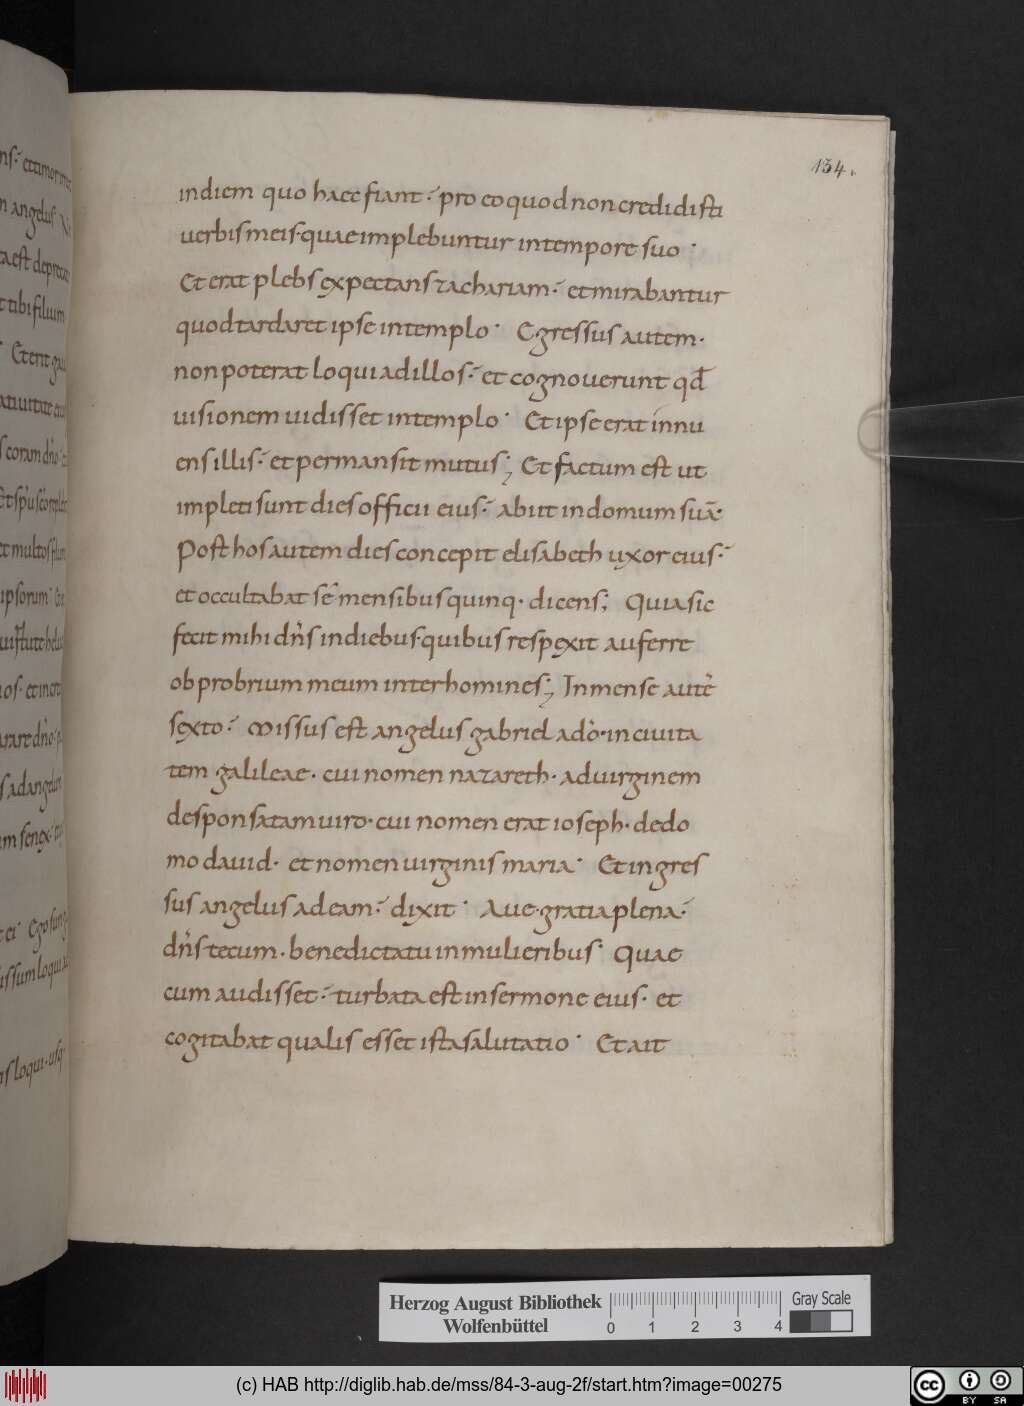 134.
indiem quo haec fiant· pro eo quod non credidisti
uerbis meis· quae implebuntur in tempore suo·
Et erat plebs expectans zachariam· et mirabantur
quod tardaret ipse in templo· Egressus autem·
non poterat loqui ad illos· et cognouerunt qd̄
uisionem uidisset in templo· Et ipse erat innu
ens illis· et permansit mutus; Et factum est ut
impleti sunt dies officii eius· abiit in domum suā·
Post hos autem dies concepit elisabeth uxor eius·
et occultabat se mensibus quinq· dicens; Quia sic
fecit mihi dn̄s in diebus· quibus respexit auferre
obprobrium meum inter homines; In mense autē
sexto· Missus est angelus gabriel a dō· in ciuita
tem galileae· cui nomen nazareth· ad uirginem
desponsatam uiro· cui nomen erat ioseph· de do
mo dauid· et nomen uirginis maria· Et ingres
sus angelus ad eam· dixit· Aue· gratia plena·
dn̄s tecum· benedicta tu in mulieribus· Quae
cum audisset· turbata est in sermone eius· et
cogitabat qualis esset ista salutatio· Et ait
Herzog August Bibliothek
Wolfenbüttel
0 1 2 3 4
Gray Scale
(c) HAB http://diglib.hab.de/mss/84-3-aug-2f/start.htm?image=00275
cc BY SA